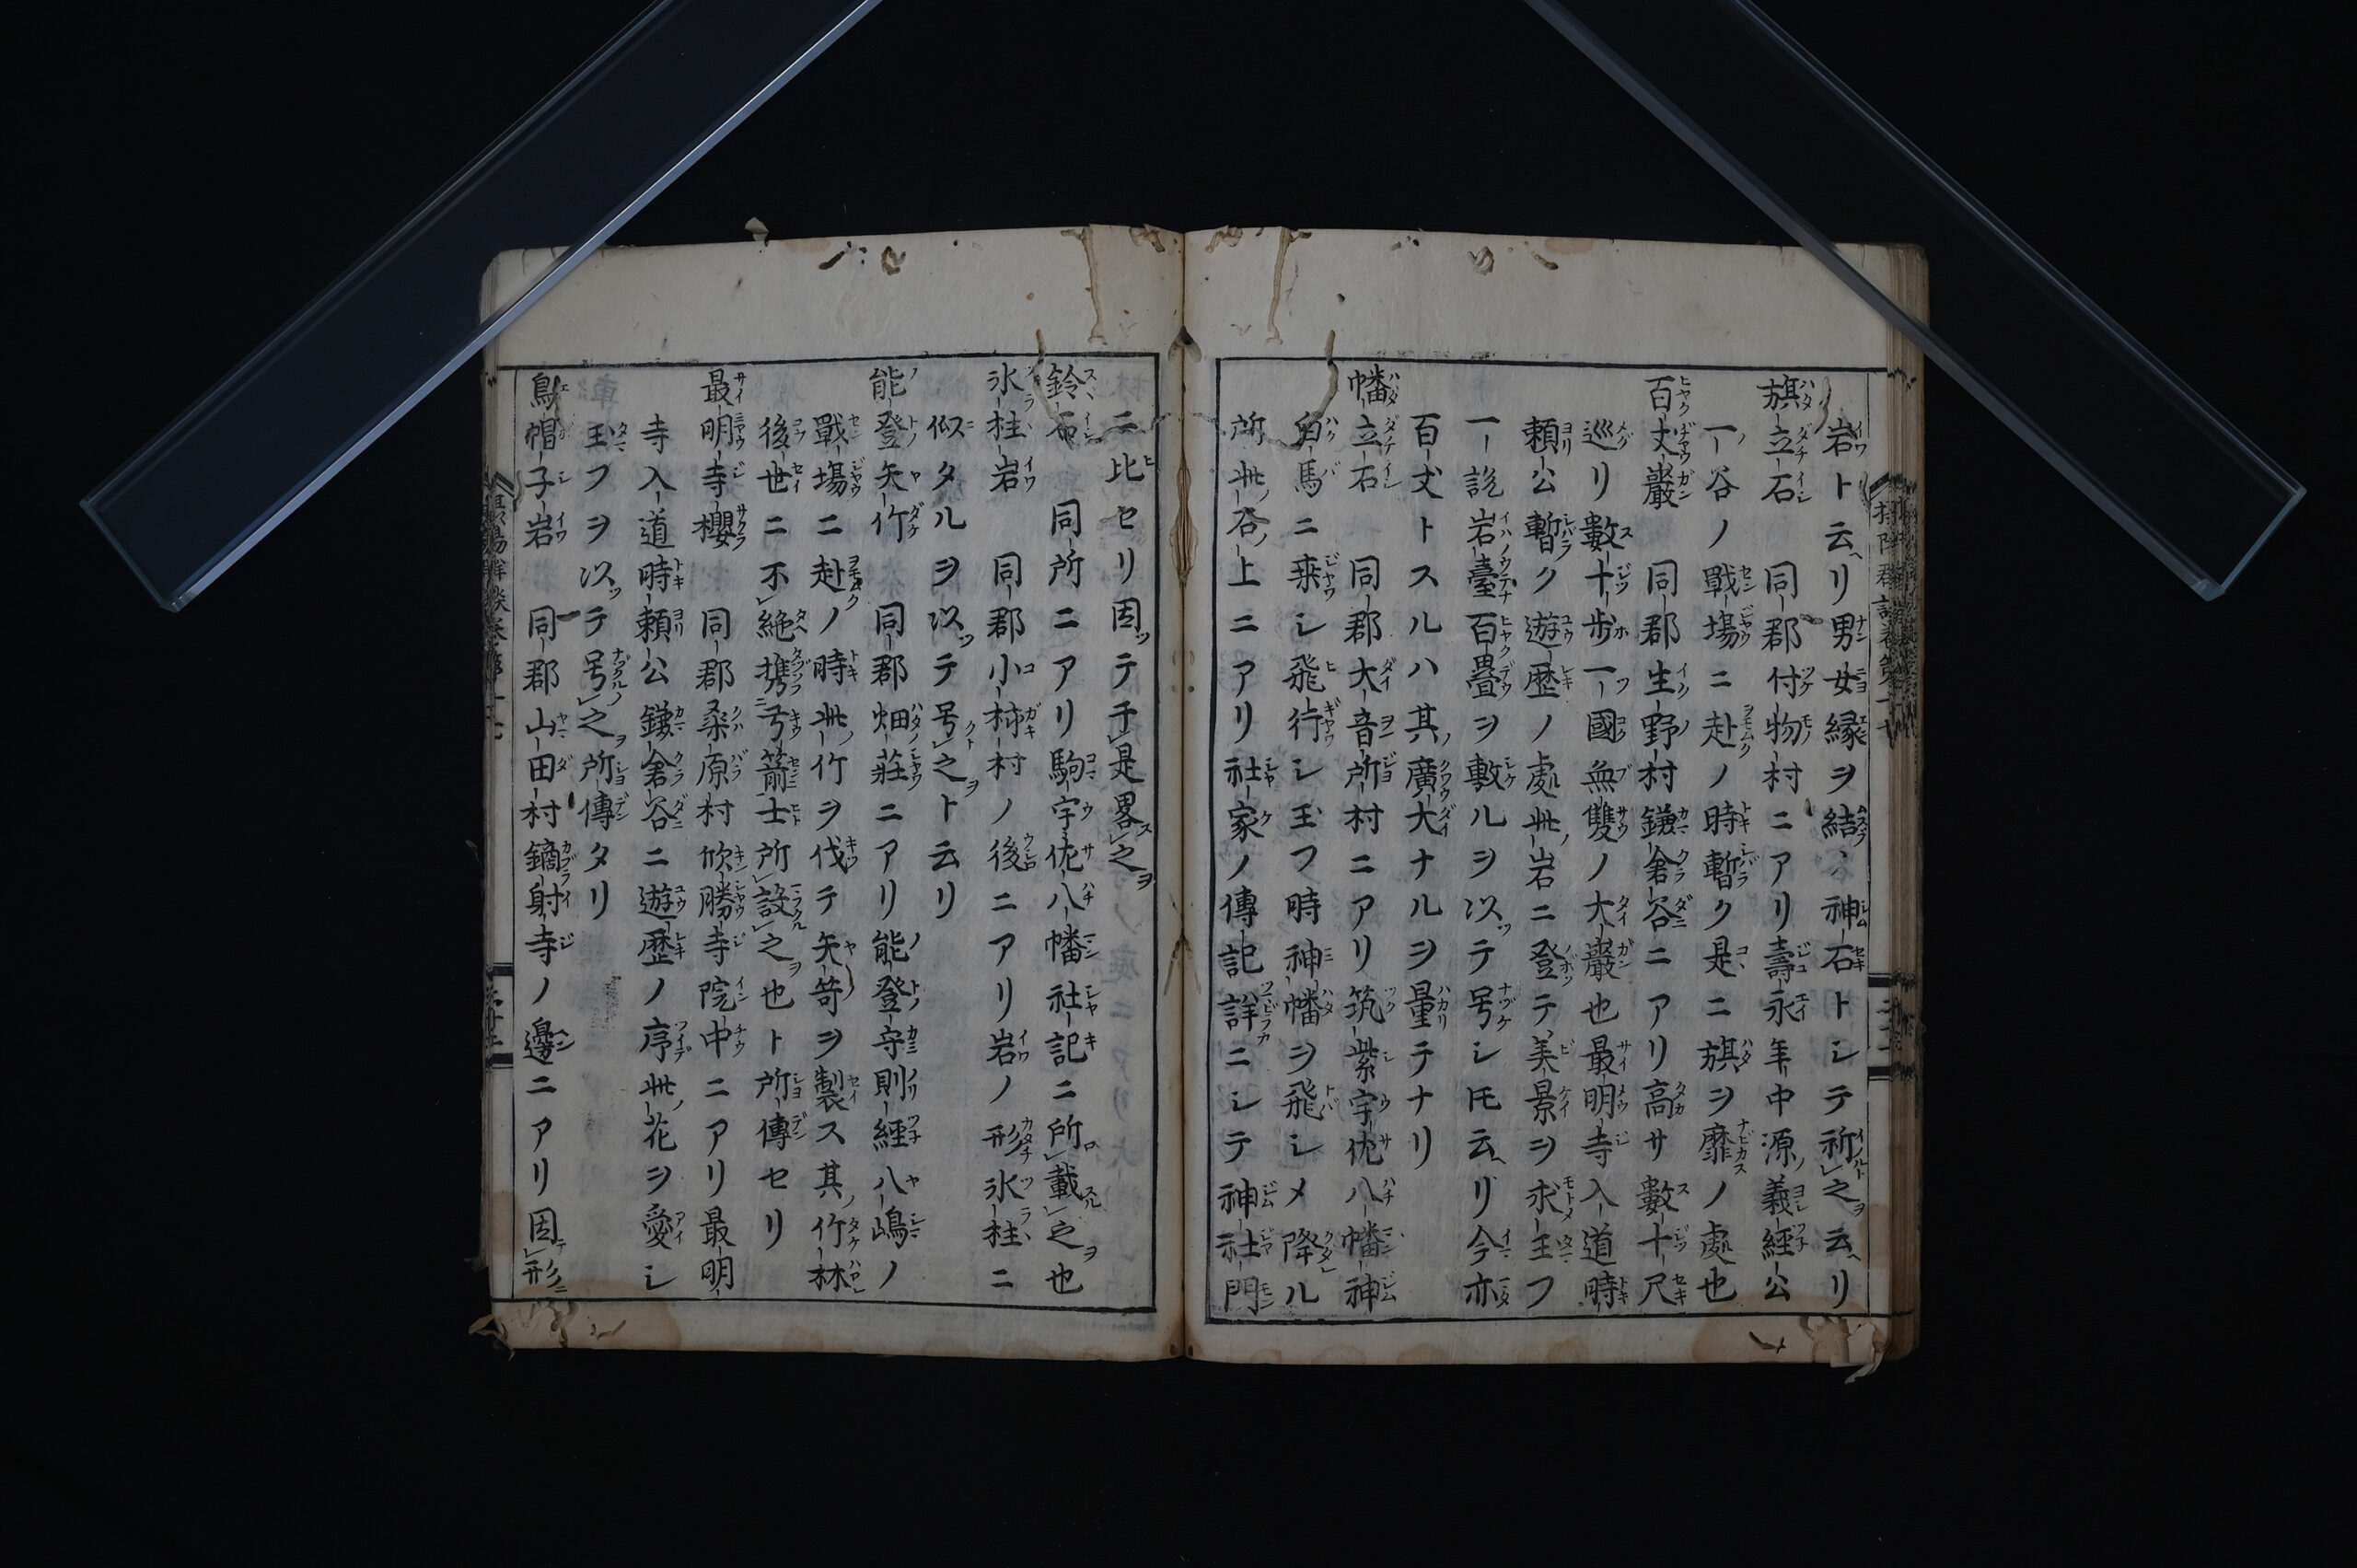 岩ト云リ男女縁ヲ結フハ神石トシテ祈之云リ
旗立石　同郡付物村ニアリ壽永年中源義經公
一谷ノ戰場ニ赴ノ時暫ク是ニ旗ヲ靡ノ處也
百丈巖　同郡生野村鎌倉谷ニアリ高サ數十尺
巡リ數十步一國無雙ノ大巖也最明寺入道時
賴公暫ク遊歷ノ處此岩ニ登テ美景ヲ求玉フ
一說岩臺百疊ヲ敷ルヲ以テ号シ𪜈云リ今亦
百丈トスルハ其廣大ナルヲ量テナリ
幡立石　同郡大音所村ニアリ筑紫宇佐八幡神
白馬ニ乘シ飛行シ玉フ時神幡ヲ飛シメ降ル
所此石上ニアリ社家ノ傳記詳ニシテ神社門
ニ比セリ因テ于是畧之
鈴石　同所ニアリ駒宇佐八幡社記ニ所載之也
氷柱岩　同郡小柿村ノ後ニアリ岩ノ形氷柱ニ
似タルヲ以テ号之ト云リ
能登矢竹　同郡畑莊ニアリ能登守則經八嶋ノ
戰場ニ赴ノ時此竹ヲ伐テ矢笴ヲ製ス其竹林
後世ニ不絶携弓箭士所設之也ト所傳セリ
最明寺櫻　同郡桑原村欣勝寺院中ニアリ最明
寺入道時賴公鎌倉谷ニ遊歷ノ序此花ヲ愛シ
玉フヲ以テ号之所傳タリ
烏帽子岩　同郡山田村鏑射寺ノ邊ニアリ因形